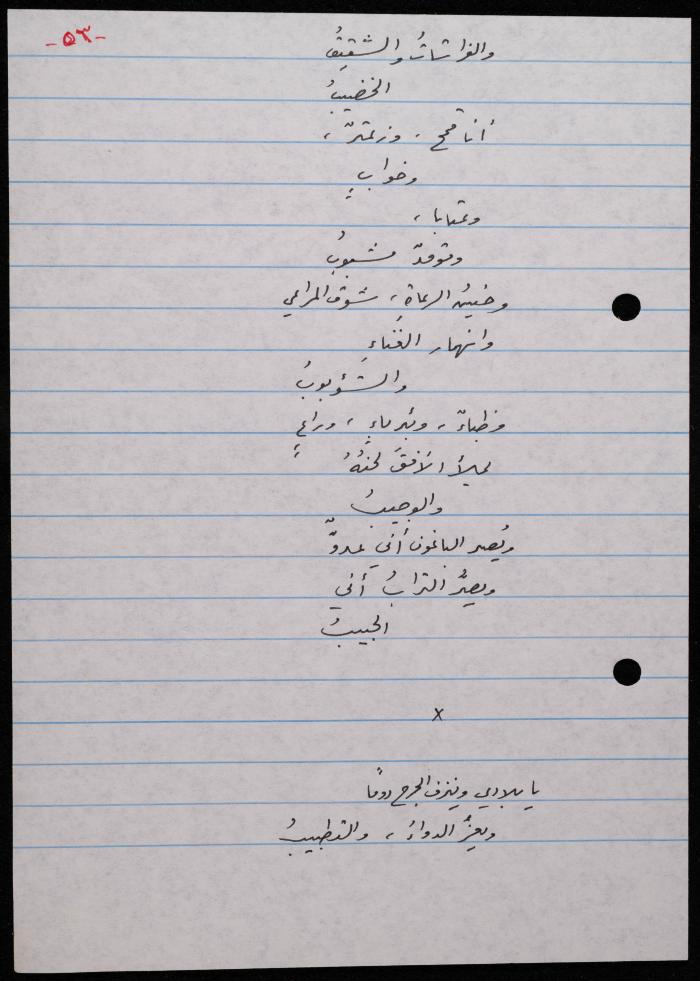 -٥٣-
والفراشاتُ والشقيقُ
الخضيبُ
أنا قمحٌ ، وزعترٌ ،
وخوابٍ
وعتابا ،
وتوقدٌ مشبوبُ
وحنينُ الرعاةِ ، شوقُ المراعي
وانهمار الغناءِ
والشؤبوبُ
وظباءٌ ، وكبرياءٌ ، وراعٍ ؛
يملأ الأفقَ لحنُهُ
والوجيبُ
ويُصر الباغون أني عدوٌّ
ويصرُّ الترابُ أني
الحبيبُ
x
يا بلادي وينزف الجرح دومًا
ويعزُّ الدواءُ ، والتطبيبُ